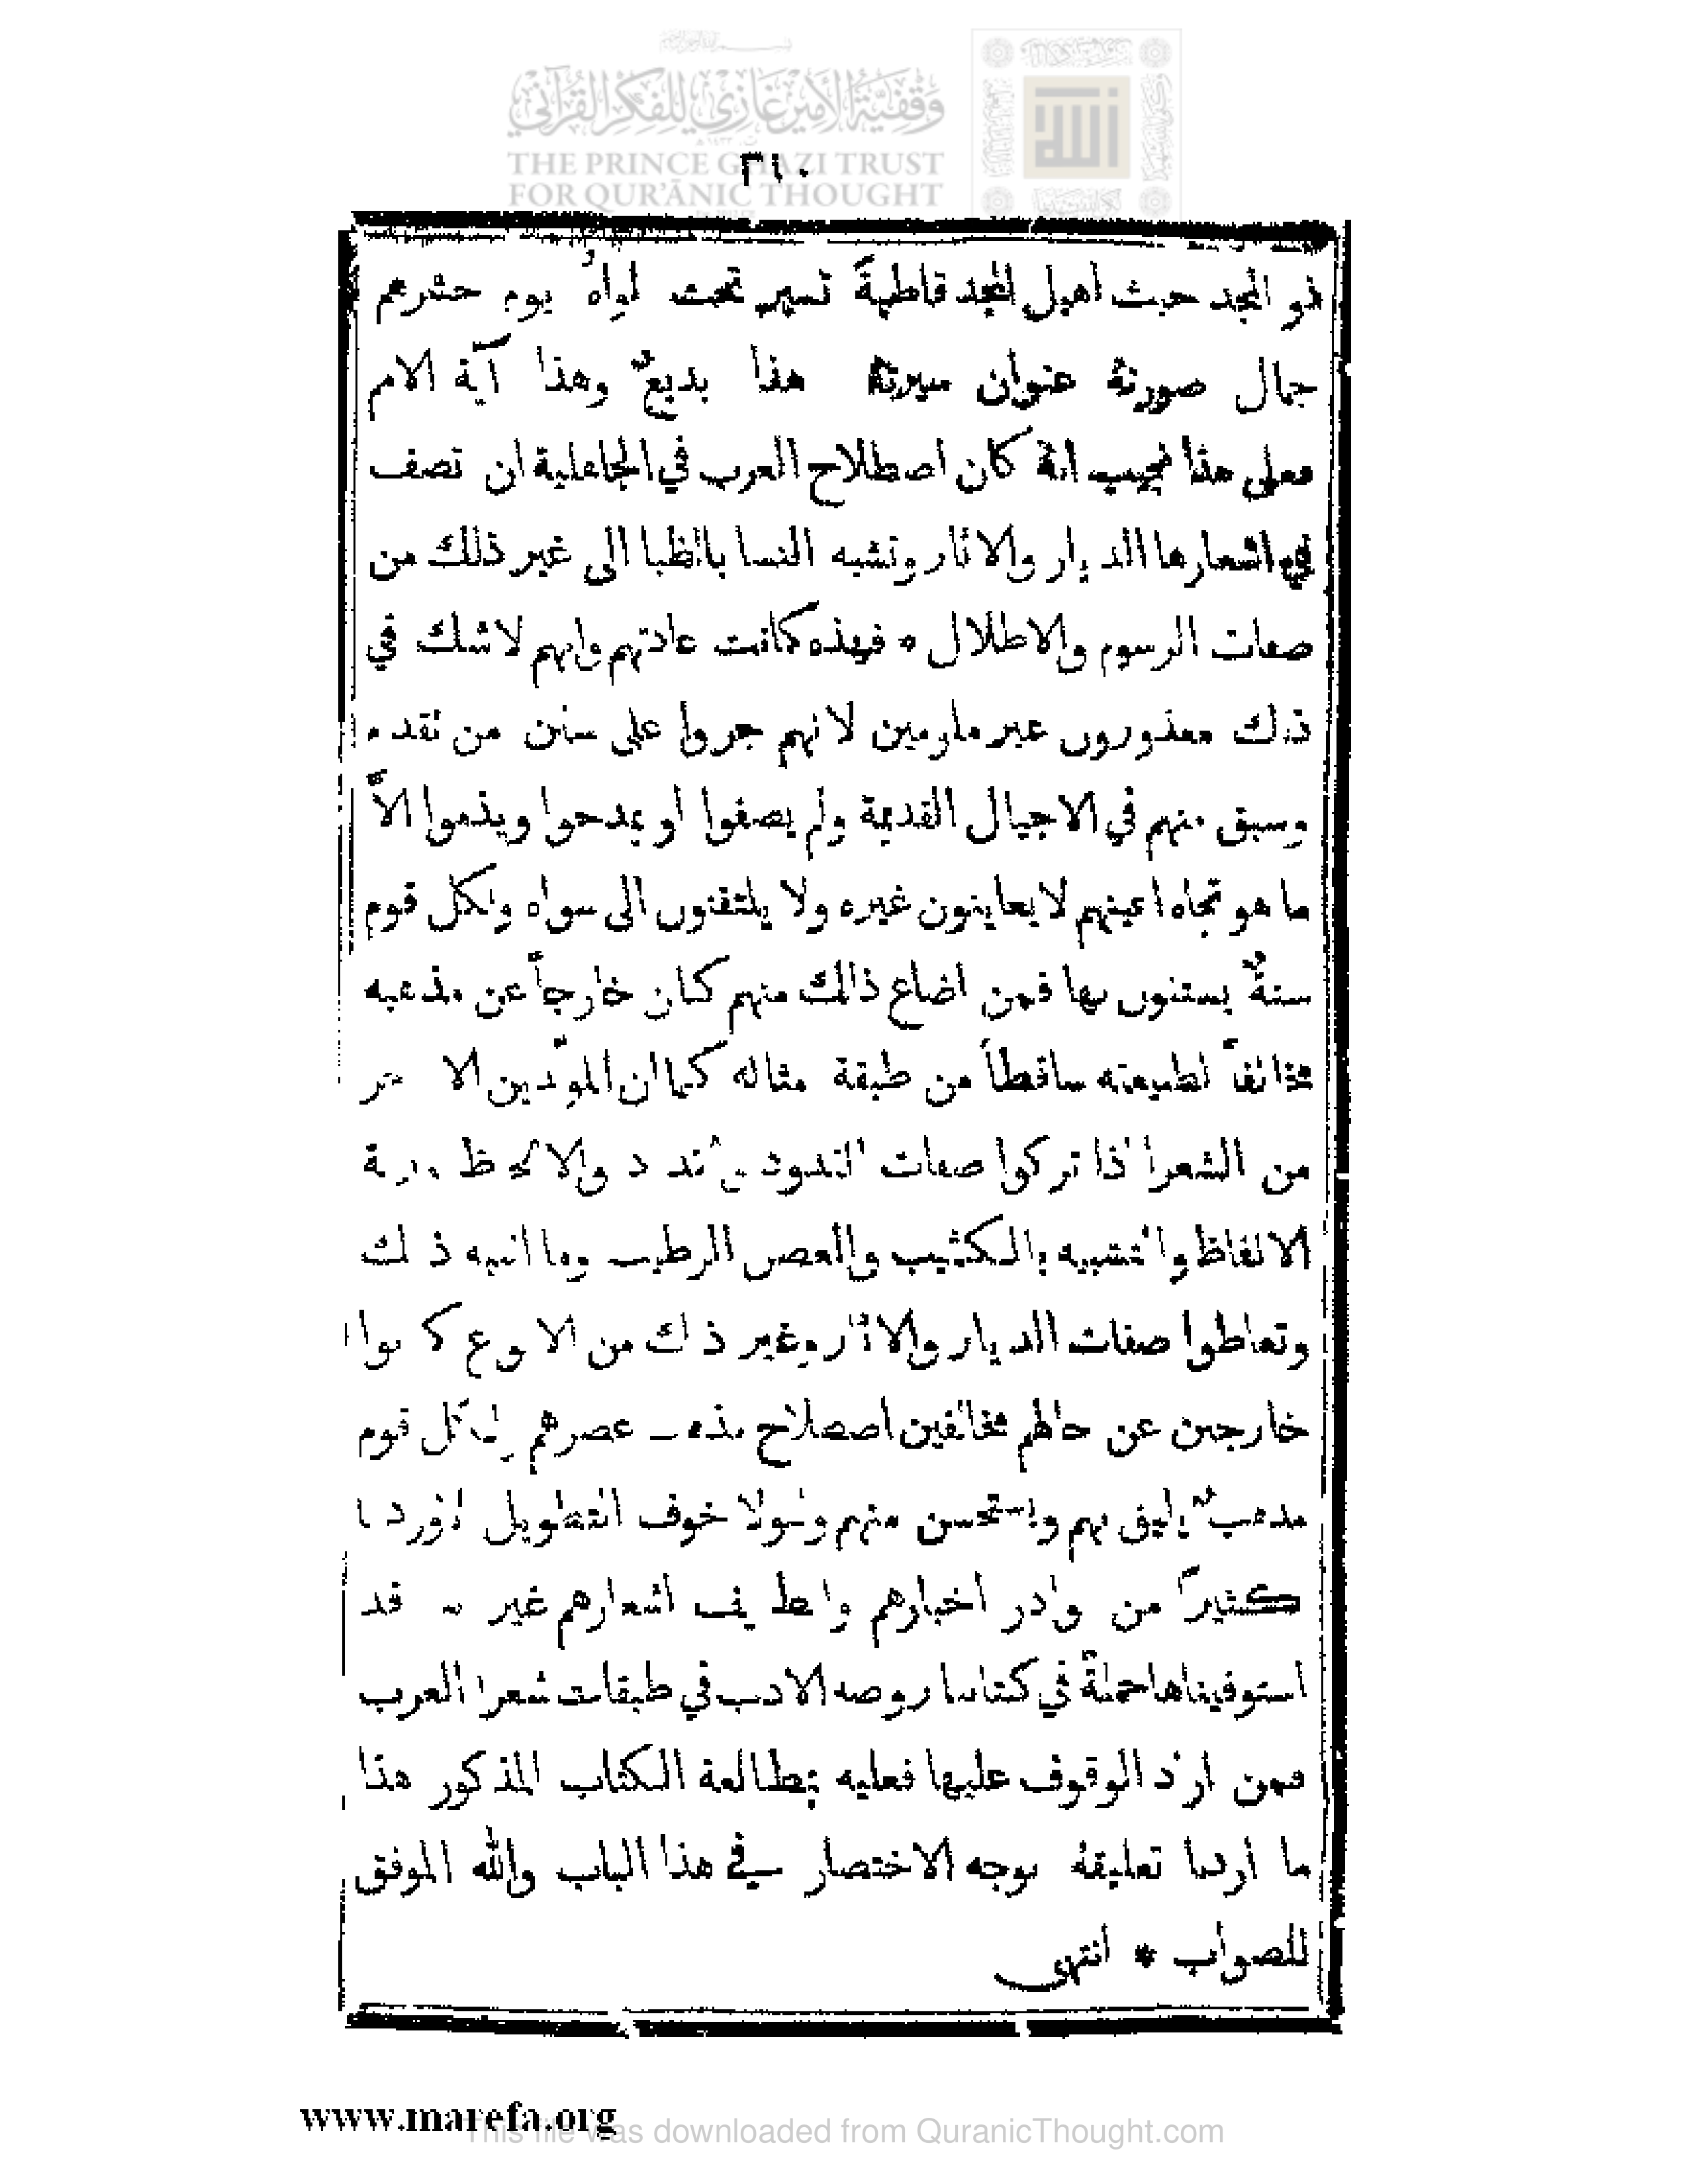 وَقْفِيَّةُ الأَمِيرِ غَازِي لِلْفِكْرِ القُرْآنِي
THE PRINCE GHAZI TRUST
FOR QUR'ĀNIC THOUGHT
٣١٠
ذو المجد حيث اهيل المجد قاطبةً تسير تحت لواهُ يوم حشرهم
جمال صورتهُ عنوان سيرتهُ هذا بديعٌ وهذا آية الامم
فعلى هذا نجيب انهُ كان اصطلاح العرب في الجاهلية ان تصف
في اشعارها الديار والاثار وتشبه النسا بالظبا الى غير ذلك من
صفات الرسوم والاطلال * فهذه كانت عادتهم وانهم لاشك في
ذلك معذورون غير ملومين لانهم جروا على سنن من تقدم
وسبق منهم في الاجيال القديمة ولم يصفوا او يمدحوا ويذموا الاَّ
ما هو تجاه اعينهم لا يعاينون غيره ولا يلتفتون الى سواه ولكل قوم
سنةٌ يستنون بها فمن اضاع ذالك منهم كان خارجاً عن مذهبه
مخالفاً لطبيعته ساقطاً من طبقة مثاله كما ان المولّدين
من الشعرا اذا تركوا صفات والالحاظ
الالفاظ والتشبيه بالكثيب والغصن الرطيب وما اشبه ذلك
وتعاطوا صفات الديار والاثار وغير ذلك من الانوع كانوا
خارجين عن حالهم مخالفين اصطلاح مذهب عصرهم ولكل قوم
مذهبٌ يليق بهم ويستحسن منهم ولولا خوف التطويل لاوردنا
كثيراً من نوادر اخبارهم ولطايف اشعارهم غير انه قد
استوفيناها جملةً في كتابنا روضة الادب في طبقات شعرا العرب
فمن اراد الوقوف عليها فعليه بمطالعة الكتاب المذكور هذا
ما اردنا تعليقهُ بوجه الاختصار في هذا الباب والله الموفق
للصواب * انتهى
www.marefa.org
This file was downloaded from QuranicThought.com